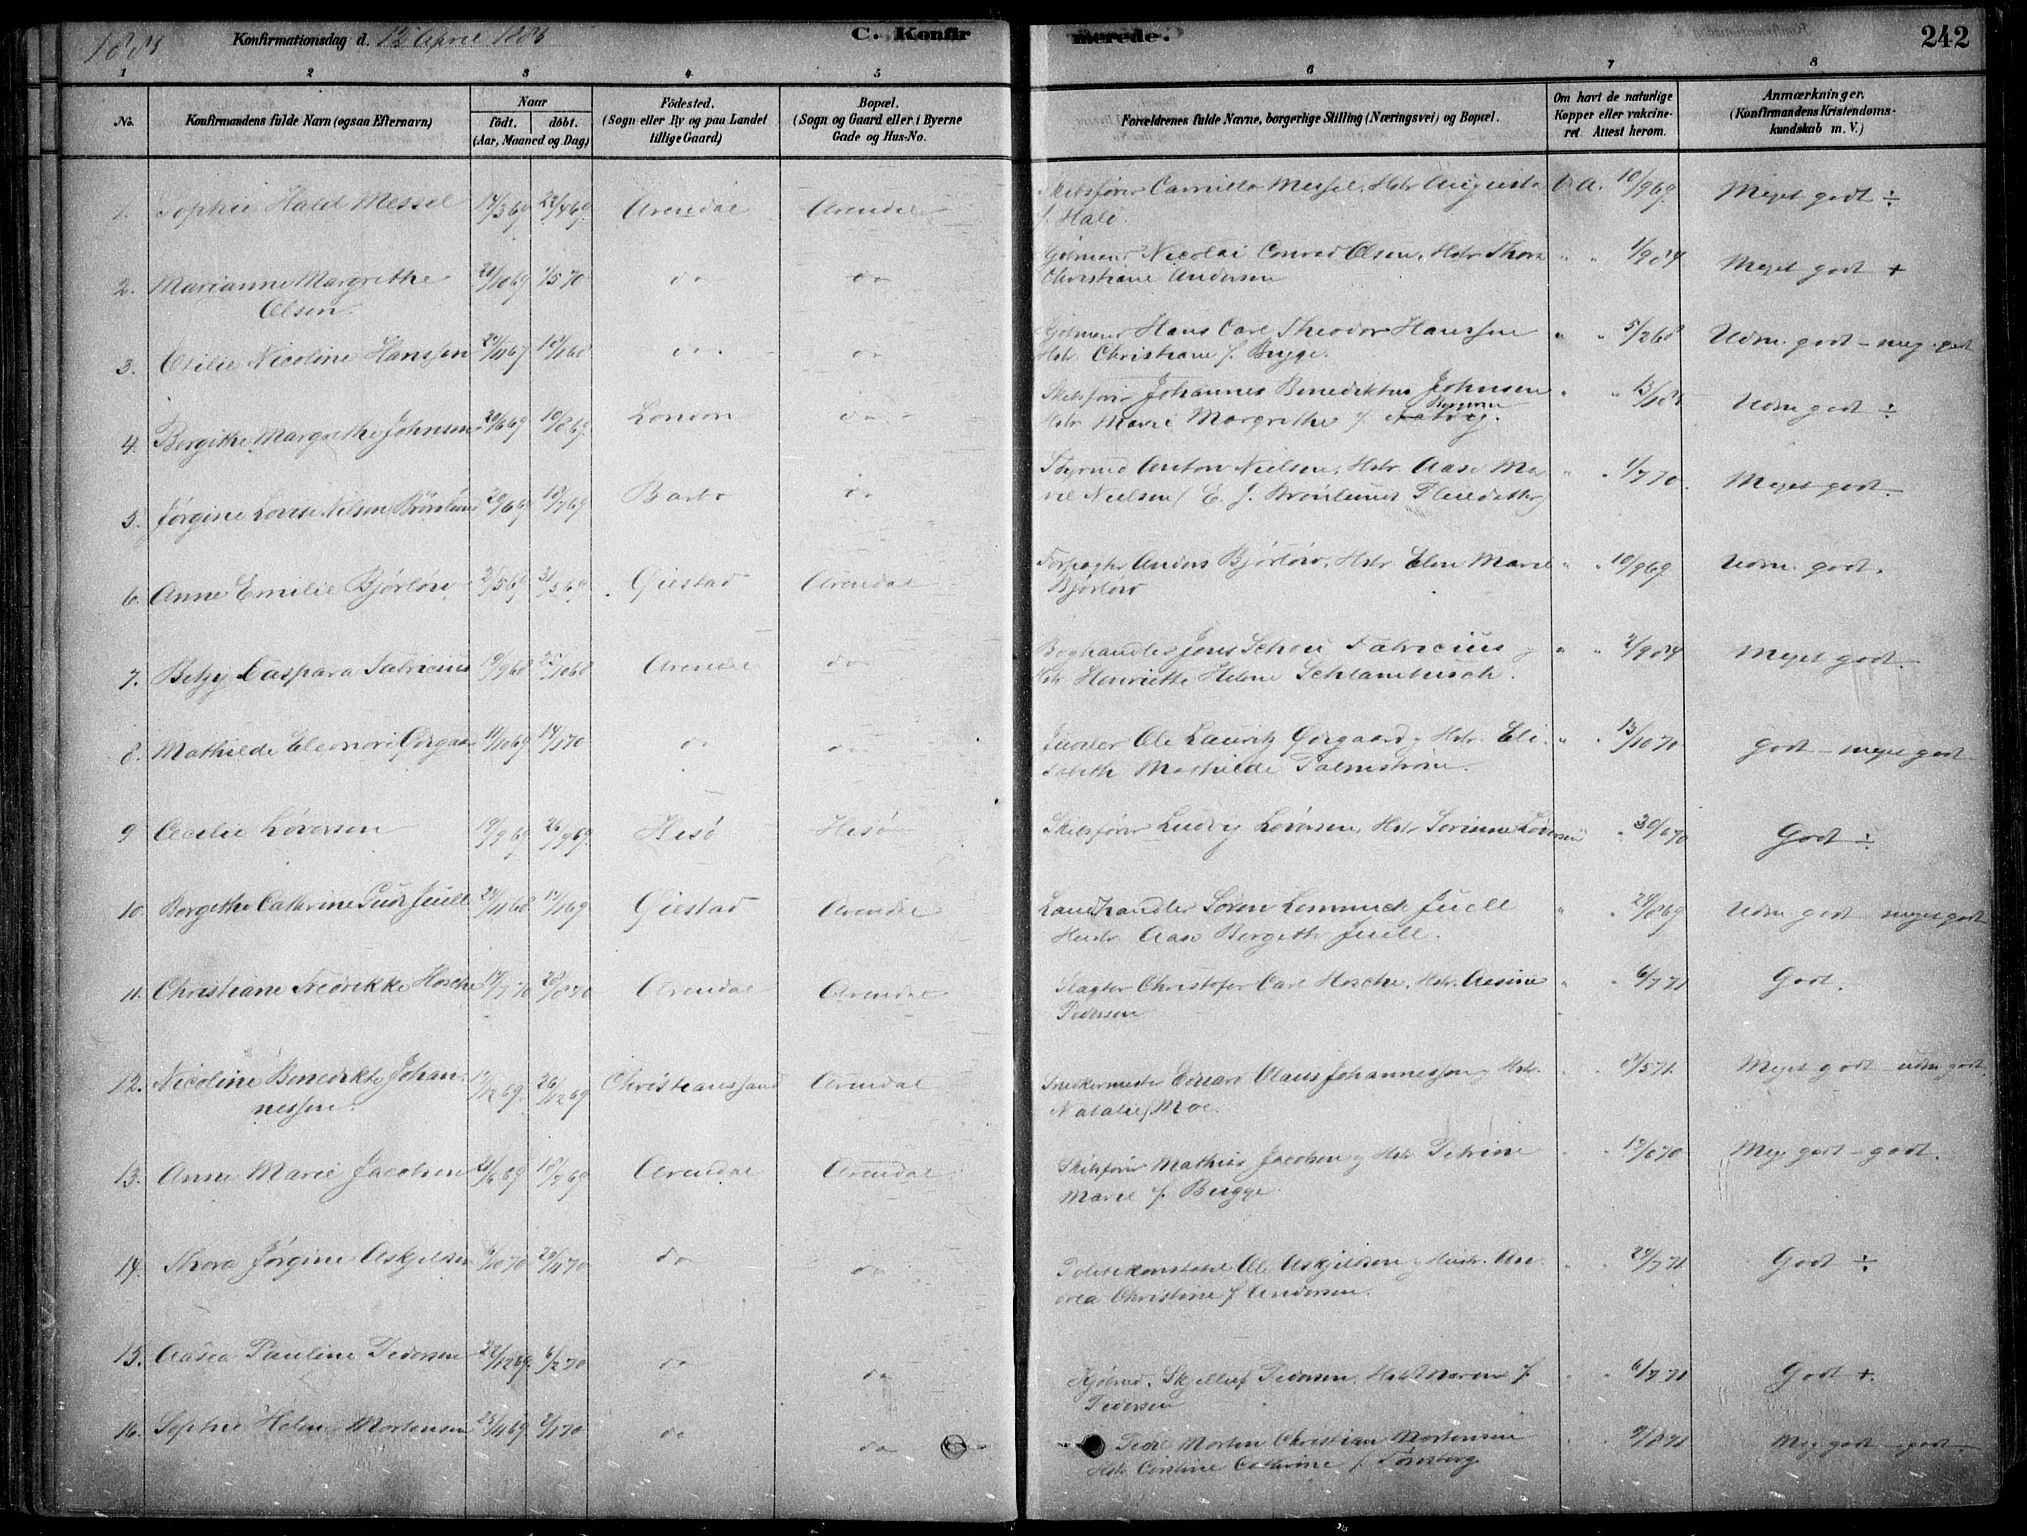 1885 Konfirmationsdag d. 12 April 1885 C. Konfir merede. 242
1 2 3 4 5 6 7 8
No. Konfirmandens fulde Navn (ogsaa Efternavn) Naar født. døbt. (Aar, Maaned og Dag) Fødested. (Sogn eller By og paa Landet tillige Gaard) Bopæl. (Sogn og Gaard eller i Byerne Gade og Hus-No. Forældrenes fulde Navne, borgerlige Stilling (Næringsvei) og Bopæl. Om havt de naturlige Kopper eller vakcineret. Attest herom. Anmærkninger. (Konfirmandens Kristendomskundskab m. V.)
1. Sophie Hald Messel 14/3 69 22/4 69 Arendal Arendal Skibsfører Camillo Messel, Hstr Augusta f. Hald. v. a. 10/9 69 Meget godt ÷
2. Marianne Margrethe Olsen. 21/10 69 1/5 70 do do Nicolai Conrad Olsen, Hstr Thora Christiane Andersen " " 1/9 84 Meget godt +
3. Otilie Nicoline Hanssen 29/11 67 10/1 68 do do Hans Carl Theodor Hanssen Hstr. Christiane f. Bugge. " " 5/2 68 Udm. godt – meg. godt
4. Borgithe Margrethe Johnsen 20/6 69 10/8 69 London do Skibsfører Johannes Benediktus Johnsen Hstr Marie Margrethe f. " " Udm godt ÷
5. Jørgine Lovise Nilsen 29/6 69 18/7 69 Barbo do Anton Nielsen, Hstr Aase Marie Nielsen " " 1/7 70. Meget godt.
6. Anne Emilie Bjørløw 31/5 69 Giestad Arendal Forpagter Anders Bjørløw, Hstr Elen Marie Bjørløw " " 10/9 69 Udm. godt.
7. Betzy Caspara Fabricius 19/9 68 25/10 68 Arendal do Boghandler Jens Schou Fabricius og Hstr Henriette Helene Schlambusch. " " 2/9 84 Meget godt.
8. Mathilde Eleonore Ørgaard 11/10 69 14/1 70 do do Juveler Ole Lauritz Ørgaard og Hstr. Elisabeth Mathilde Palmstrøm. " " 13/10 70 godt – meget godt
9 Cecilie Løversen 19/7 69 26/9 69 Hisø Hisø Skibsfører Ludvig Løversen, Hstr Sorinne Løversen " 30/6 70 Godt ÷
10. Borgethe Cathrine Juell 29/11 68 17/1 69 Giestad Arendal Landhandler Søren Juell Hustr. Aase Borgethe Juell. " 24/8 69 Udm godt – meget godt
11. Christiane Fredrikke Hosche 17/7 70 28/8 70 Arendal Arendal Slagter Christofer Carl Hosche, Hstr. Pedersen " " 6/7 71 Godt.
12. Nicoline Benedikte Johannessen. 17/12 69. 26/12 69 Christianssand Arendal Snedkermester Edvard Olaus Johannessen og Hstr. Natalie f. Moe. " 5 71. Meget godt udm godt.
13. Anne Marie Jacobsen 21/6 69 18/7 69 Arendal Arendal Skibsfører Mathias Jacobsen og Hstr Petrine Marie f. Bugge. " " 17/8 70 Meg. godt – godt.
14. Thora Jørgine Askjelsen /10 70 20/11 70 do do Politikonstabel Ole Askjelsen og Hustr. Andrea Christine f. Andersen. " " 24/7 71 Godt ÷
15. Aasea Pauline Pedersen 22/12 69. 6/2 70 do do Skjellef Pedersen, Hstr Maren f. Pedersen " " 6/7 71 Godt +.
16. Sophie Helene Mortensen 23/11 69 /1 70 do do Morten Christian Mortensen Hstr Cathrine f. Tønsberg " 9/8 71 Meg godt – godt.